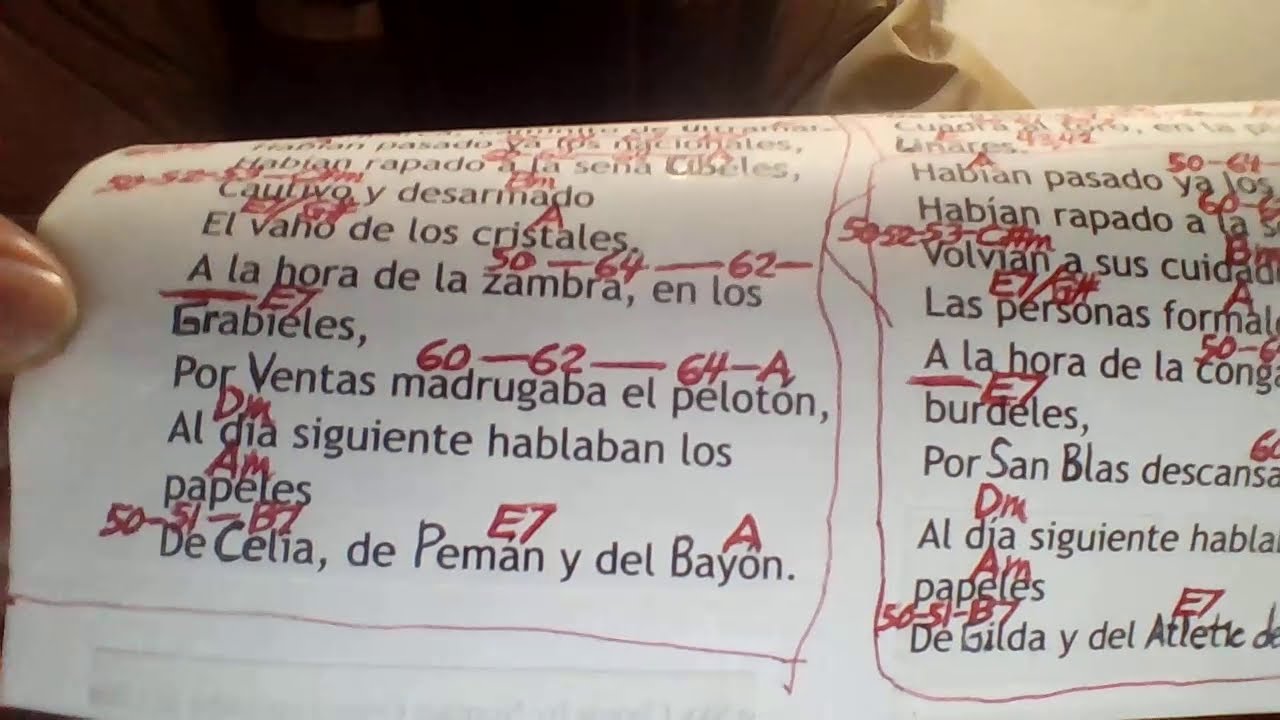 Habían pasado ya los nacionales,
Habían rapado a la seña Cibeles,
50-52-53-C#m Bm
Cautivo y desarmado
E7/G# A
El vaho de los cristales.
50 — 64 — 62 —
A la hora de la zambra, en los
— E7
Grabieles,
60 — 62 — 64 - A
Por Ventas madrugaba el pelotón,
Dm
Al día siguiente hablaban los
Am
papeles
50-51-B7 E7 A
De Celia, de Pemán y del Bayón.
en la
Linares. 43,42
A 50-64-
Habían pasado ya los
60-
Habían rapado a la s
50-52-53-C#m Bm
Volvían a sus cuidad
E7/G# A
Las personas formal
50-6
A la hora de la conga
— E7
burdeles,
60
Por San Blas descansa
Dm
Al día siguiente habla
Am
papeles
50-51-B7 E7
De Gilda y del Atletic de